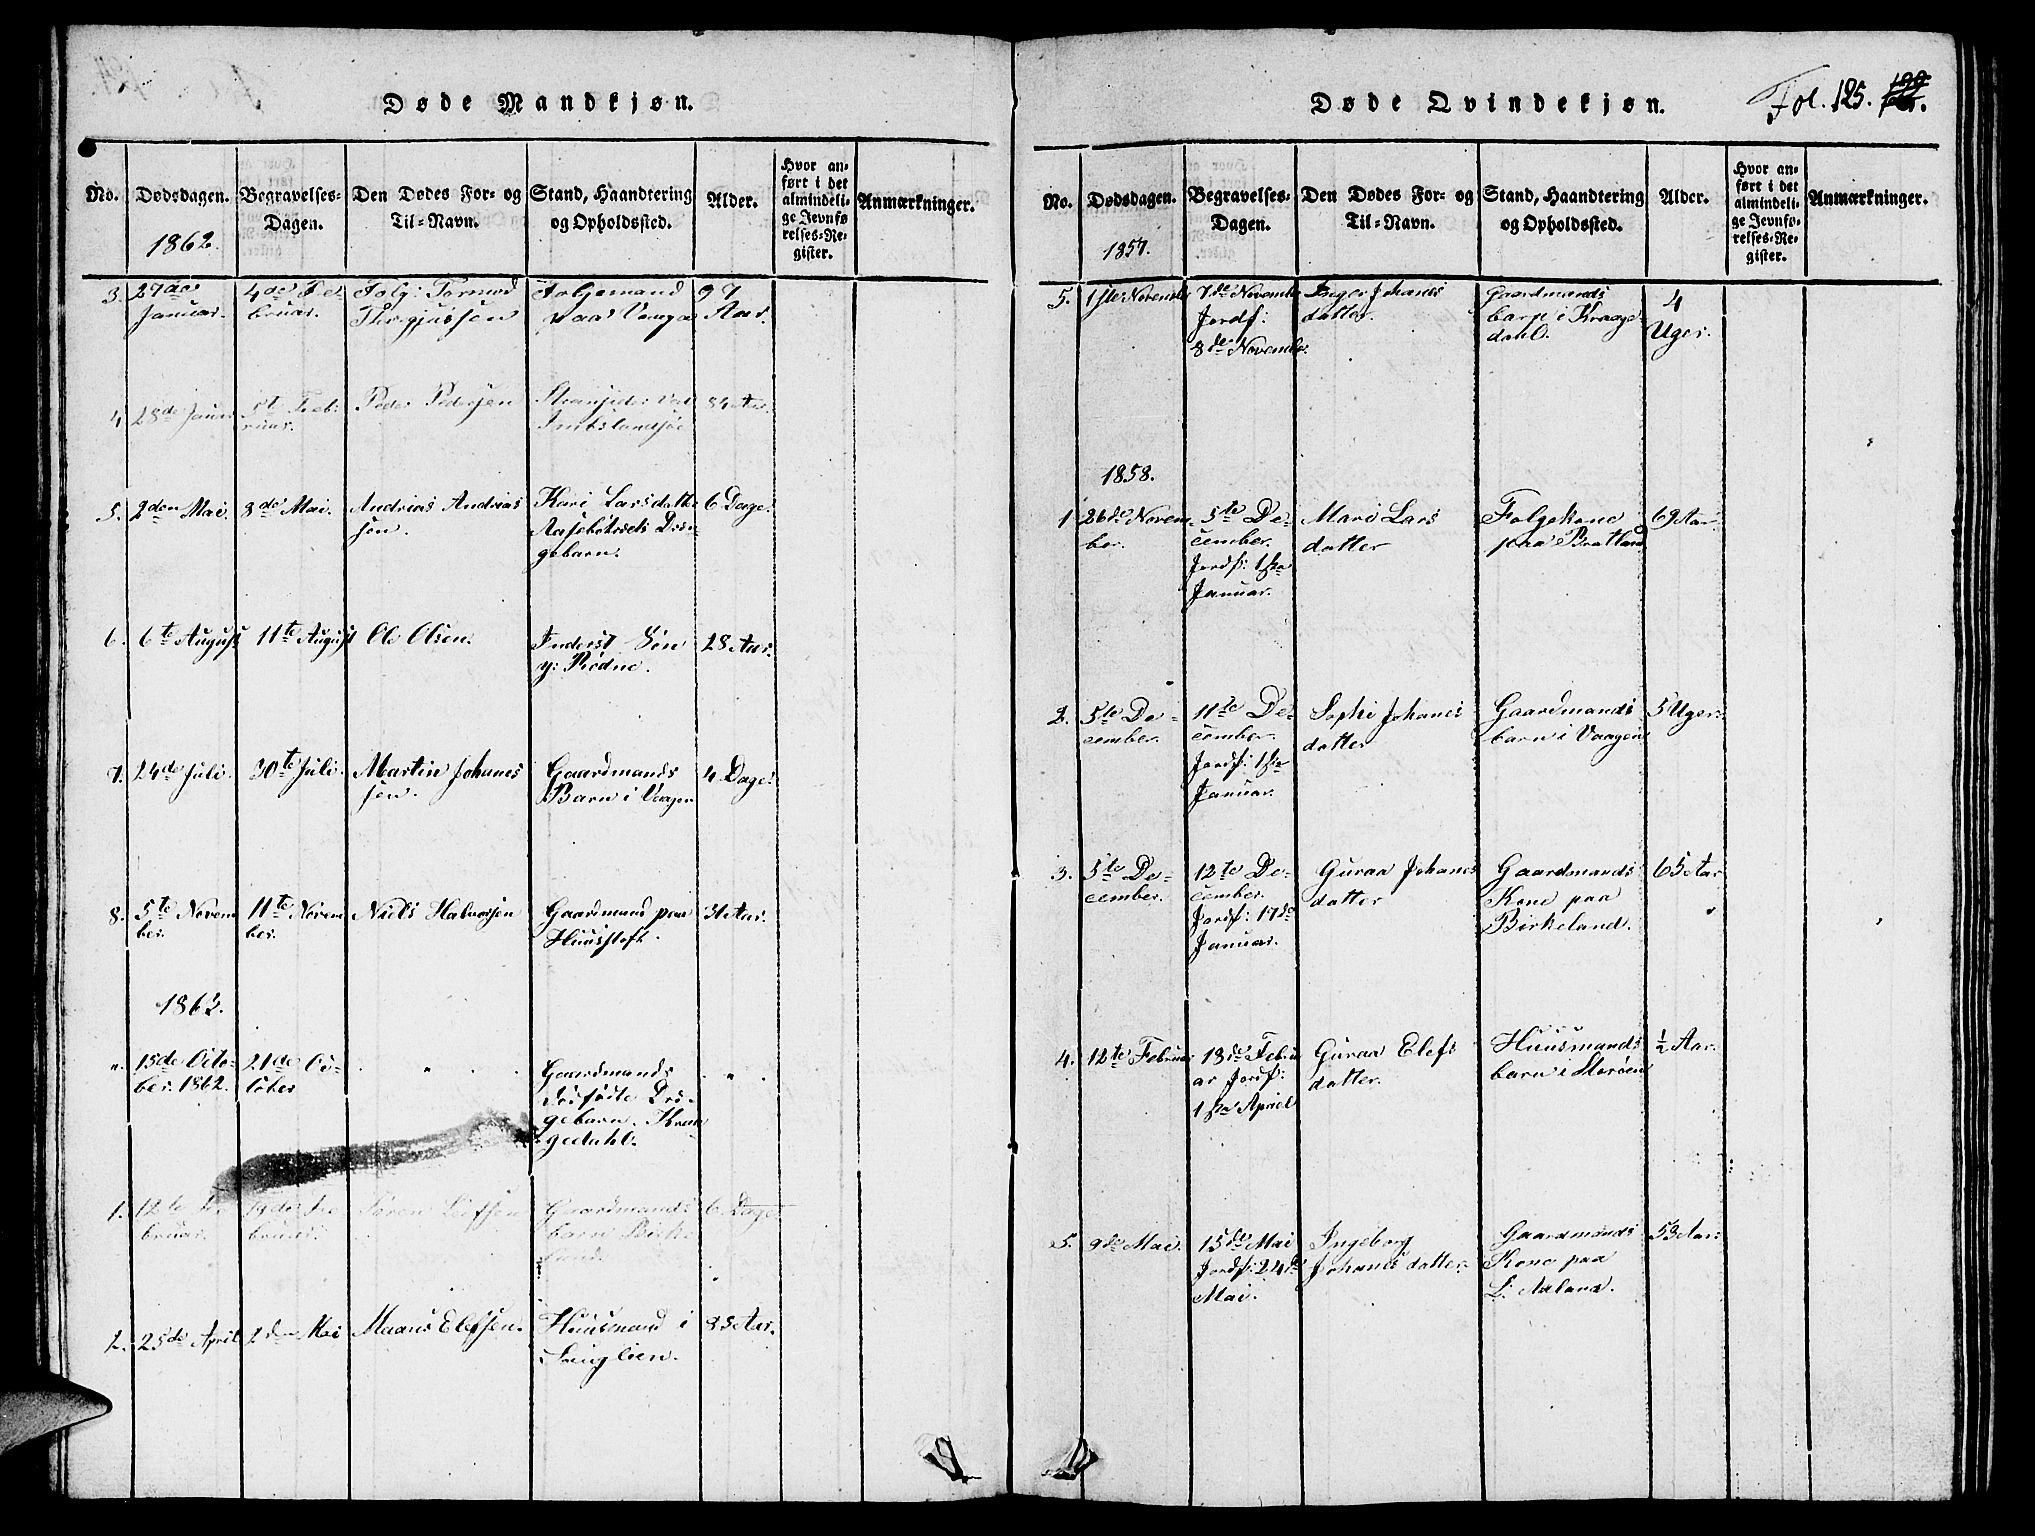 Døde Mandkjøn.
No.
Dødsdagen.
Begravelses-
Dagen.
Den Dødes For- og
Til-Navn.
Stand, Haandtering
og Opholdssted.
Alder.
Hvor an-
ført i det
almindeli-
ge Jevnfø
relses-Re-
gister.
Anmærkninger.
1862.
3. 27de
Januar.
4de Fe-
bruar.
Folg: Tormod
Folgemand
paa Vaaga
97
Aar.
4 28de Januar
5t Feb-
ruar.
Peder Pedersen
84 Aar.
5. 2den Mai.
8de Mai.
Andrias Andrias
sen.
Kari Larsdatter
gebarn.
6 Dage.
6. 6te August
11te August
Ole Olsen.
Inderst Søn
y: Rødne.
28 Aar.
7. 24de Juli.
30te Juli.
Martin Johanes
sen.
Gaardmands
Barn i Vaagen
4 Dage.
8. 5te Novem
ber.
11te Novem
ber.
Niels Halvorsen
Gaardmand paa
Huustoft.
31 Aar.
1862.
". 15de Octo-
ber. 1862.
21de Oc-
tober
. " .
Gaardmands
dødfødte Dre-
gebarn. Kraa
gedahl.
. " .
1. 12te Fe-
bruar.
19de Fe
bruar.
Søren Leifsen
Gaardmands
barn Birke
land.
6 Dage
2. 25de April
2den Mai
Maans Elefsen.
Huusmand i
83 Aar.
Døde Qvindekjøn.
Fol. 125.
No.
Dødsdagen.
Begravelses-
Dagen.
Den Dødes For- og
Til-Navn.
Stand, Haandtering
og Opholdssted.
Alder.
Hvor an-
ført i det
almindeli-
ge Jevnfø-
relses-Re-
gister.
Anmærkninger.
1857.
5. 1ste November
7de November
Jordf:
8de November.
Inger Johanes
datter.
Gaardmands
barn i Kraage-
dahl.
4
Uger.
1858.
1 26de Novem-
ber.
5te De-
cember.
Jordf: 1ste
Januar.
Mari Lars
datter
Folgekone
paa Bratland
69 Aar
2. 5te De-
cember.
11te De-
cember.
Jordf: 1ste
Januar.
Sophi Johanes
datter
Gaardmands
barn i Vaagen
5 Uger.
3. 5te De-
cember.
12te De-
cember.
Jordf: 17de
Januar.
Guraa Johanes
datter
Gaardmands
Kone paa
Birkeland.
65 Aar
4. 12te Februar
18de Febru
ar Jordf:
1ste April
Guraa Elefs
datter.
Huusmands
barn i Storøen
½ Aar.
5. 9de Mai.
15de Mai
Jordf: 24de
Mai.
Ingeborg
Johanes datter.
Gaardmands
Kone paa
L: Aaland.
53 Aar